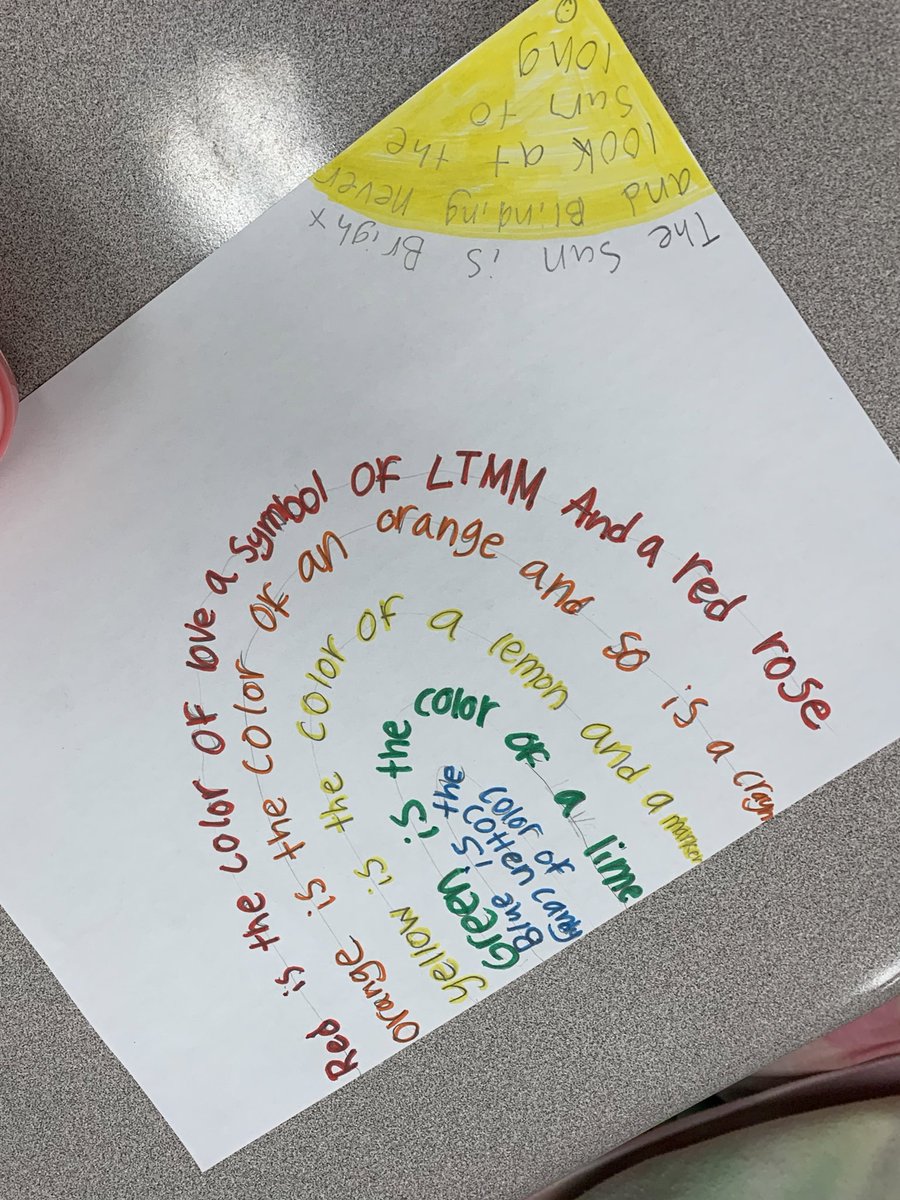 The Sun is Bright
and Blinding never
look at the
sun to
long
Red is the color of love a Symbol of LTMM And a red rose
orange is the color of an orange and so is a crayn
yellow is the color of a lemon and a marker
Green is the color of a lime
Blue is the
color of
cotten candy